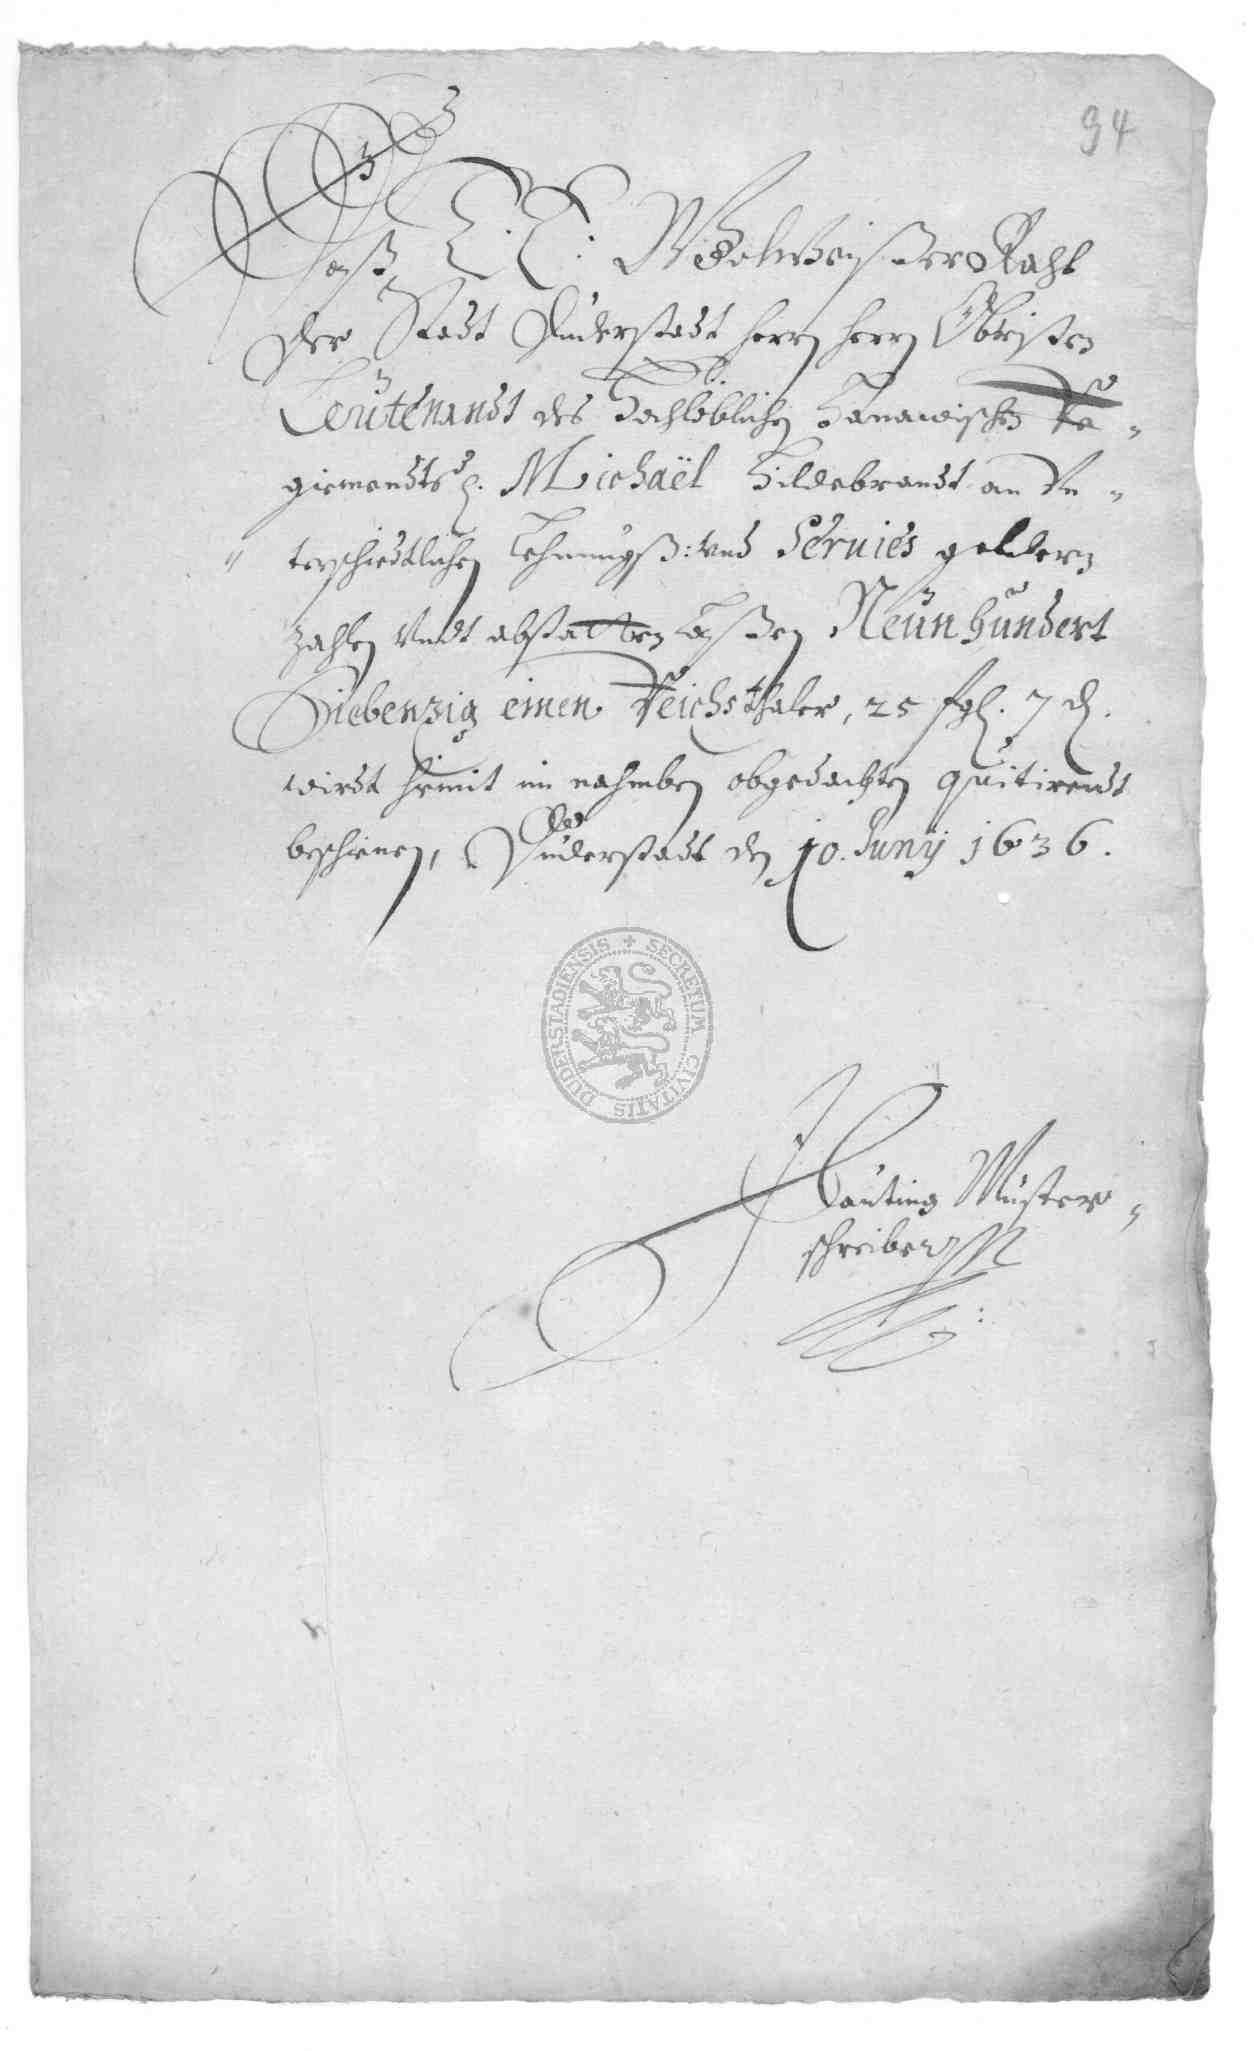 94
Daß E. E: Wohlweißer Raht
der Stadt Duderstadt herrn herrn Obristen
Leutenandt des Hochlöblichen Hanawischen Re-
giemendts h. Michaël Hildebrandt an Un-
terschiedtlichen Lehnungß: und Seruies geldern
zahlen Undt abstatten Laßen Neunhundert
Siebenzig einen Reichsthaler, 25 ßgl. 7 d.
wirdt hiemit im nahmben obgedachten quitirendt
beschienen, Duderstadt den 10. Junÿ 1636.
SECRETUM CIVITATIS DUDERSTADIENSIS
Muster-
schreiber